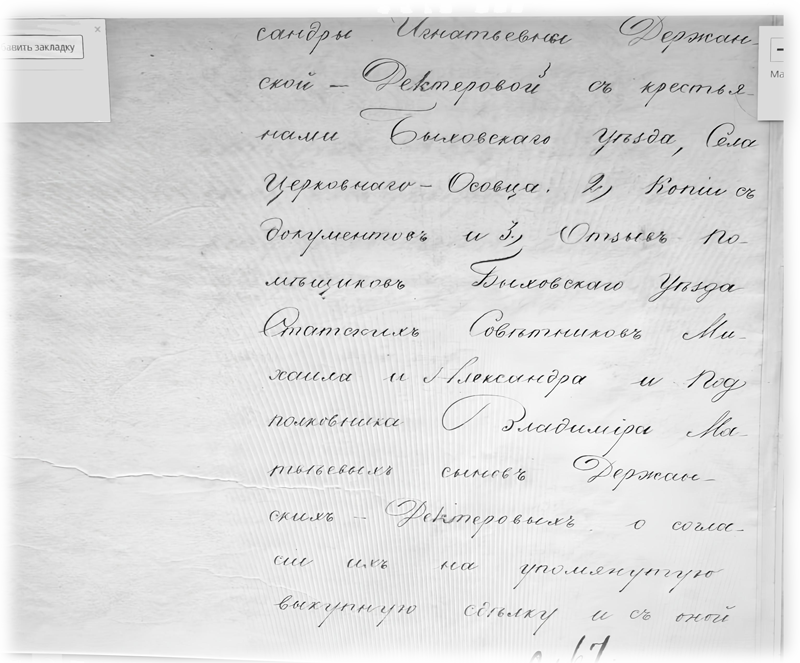 авить закладку
Ма
сандры Игнатьевны Держан-
ской – Дектеровой съ крестья-
нами Быховскаго Уѣзда, Села
Церковнаго – Осовца. 2, Копіи съ
документовъ и 3, Отзывъ По-
мѣщиковъ Быховскаго Уѣзда
Статскихъ Совѣтниковъ Ми-
хаила и Александра и Под
полковника Владиміра Ма-
тѣевыхъ сыновъ Держан-
скихъ – Дектеровыхъ о согла-
сіи ихъ на упомянутую
выкупную сдѣлку и съ оной